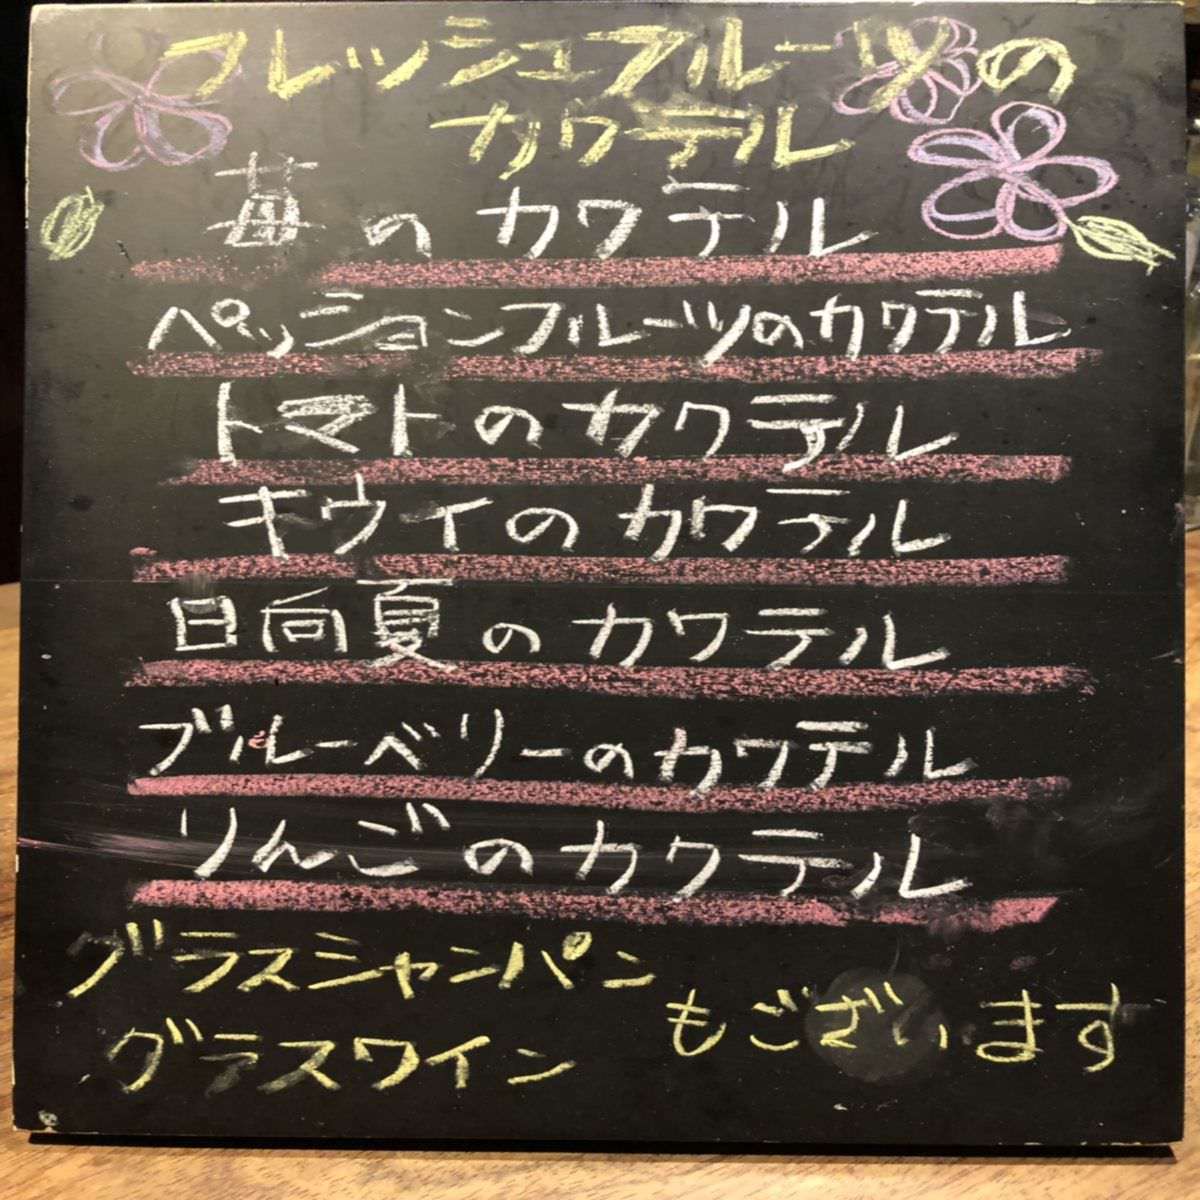 フレッシュフルーツの
カクテル
苺のカクテル
パッションフルーツのカクテル
トマトのカクテル
キウイのカクテル
日向夏のカクテル
ブルーベリーのカクテル
りんごのカクテル
グラスシャンパン
グラスワイン
もございます